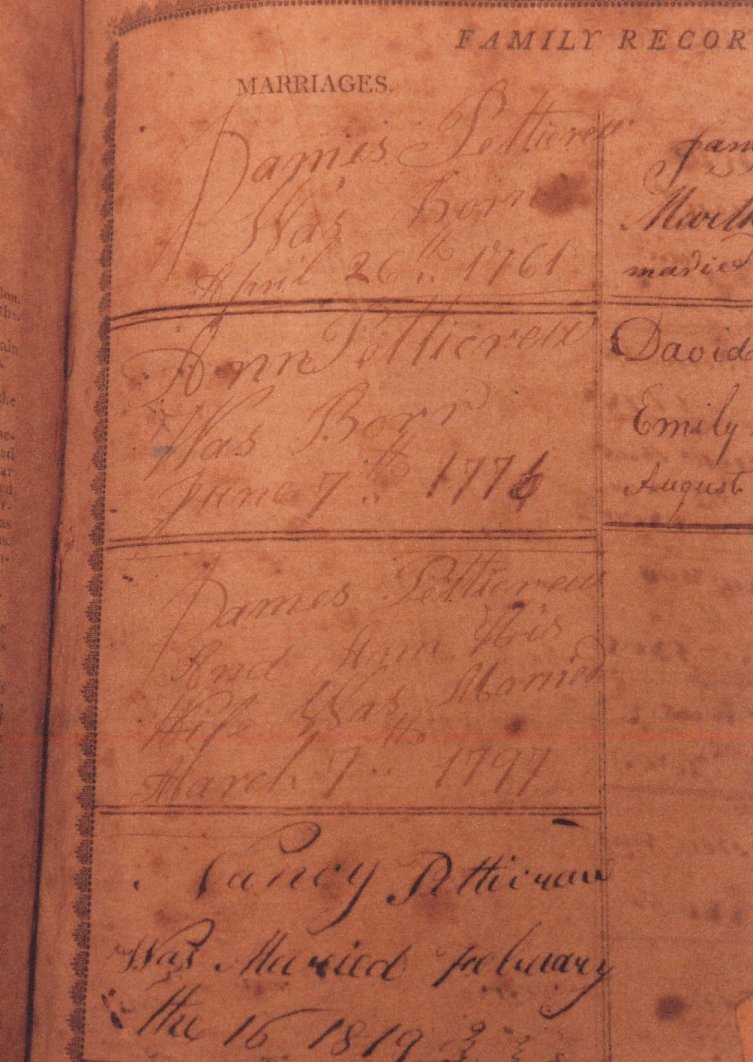 FAMILY RECOR
MARRIAGES.
James Petticrew
Was Born
April 26th 1761
Ann Petticrew
Was Born
June 7th 1776
James Petticrew
And Ann His
Wife Was Married
March 7th 1797
Nancy Petticrew
Was Married February
the 16 1819
David
Emily
August